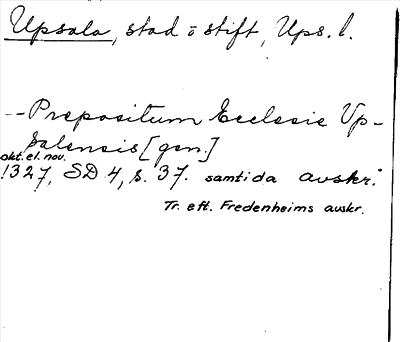 Upsala, stad o stift, Ups. l.
-- Prepositum Ecclesie Up-
salensis [gen.]
okt. el. nov.
1327, SD 4, s. 37. samtida avskr.
Tr. eft. Fredenheims avskr.